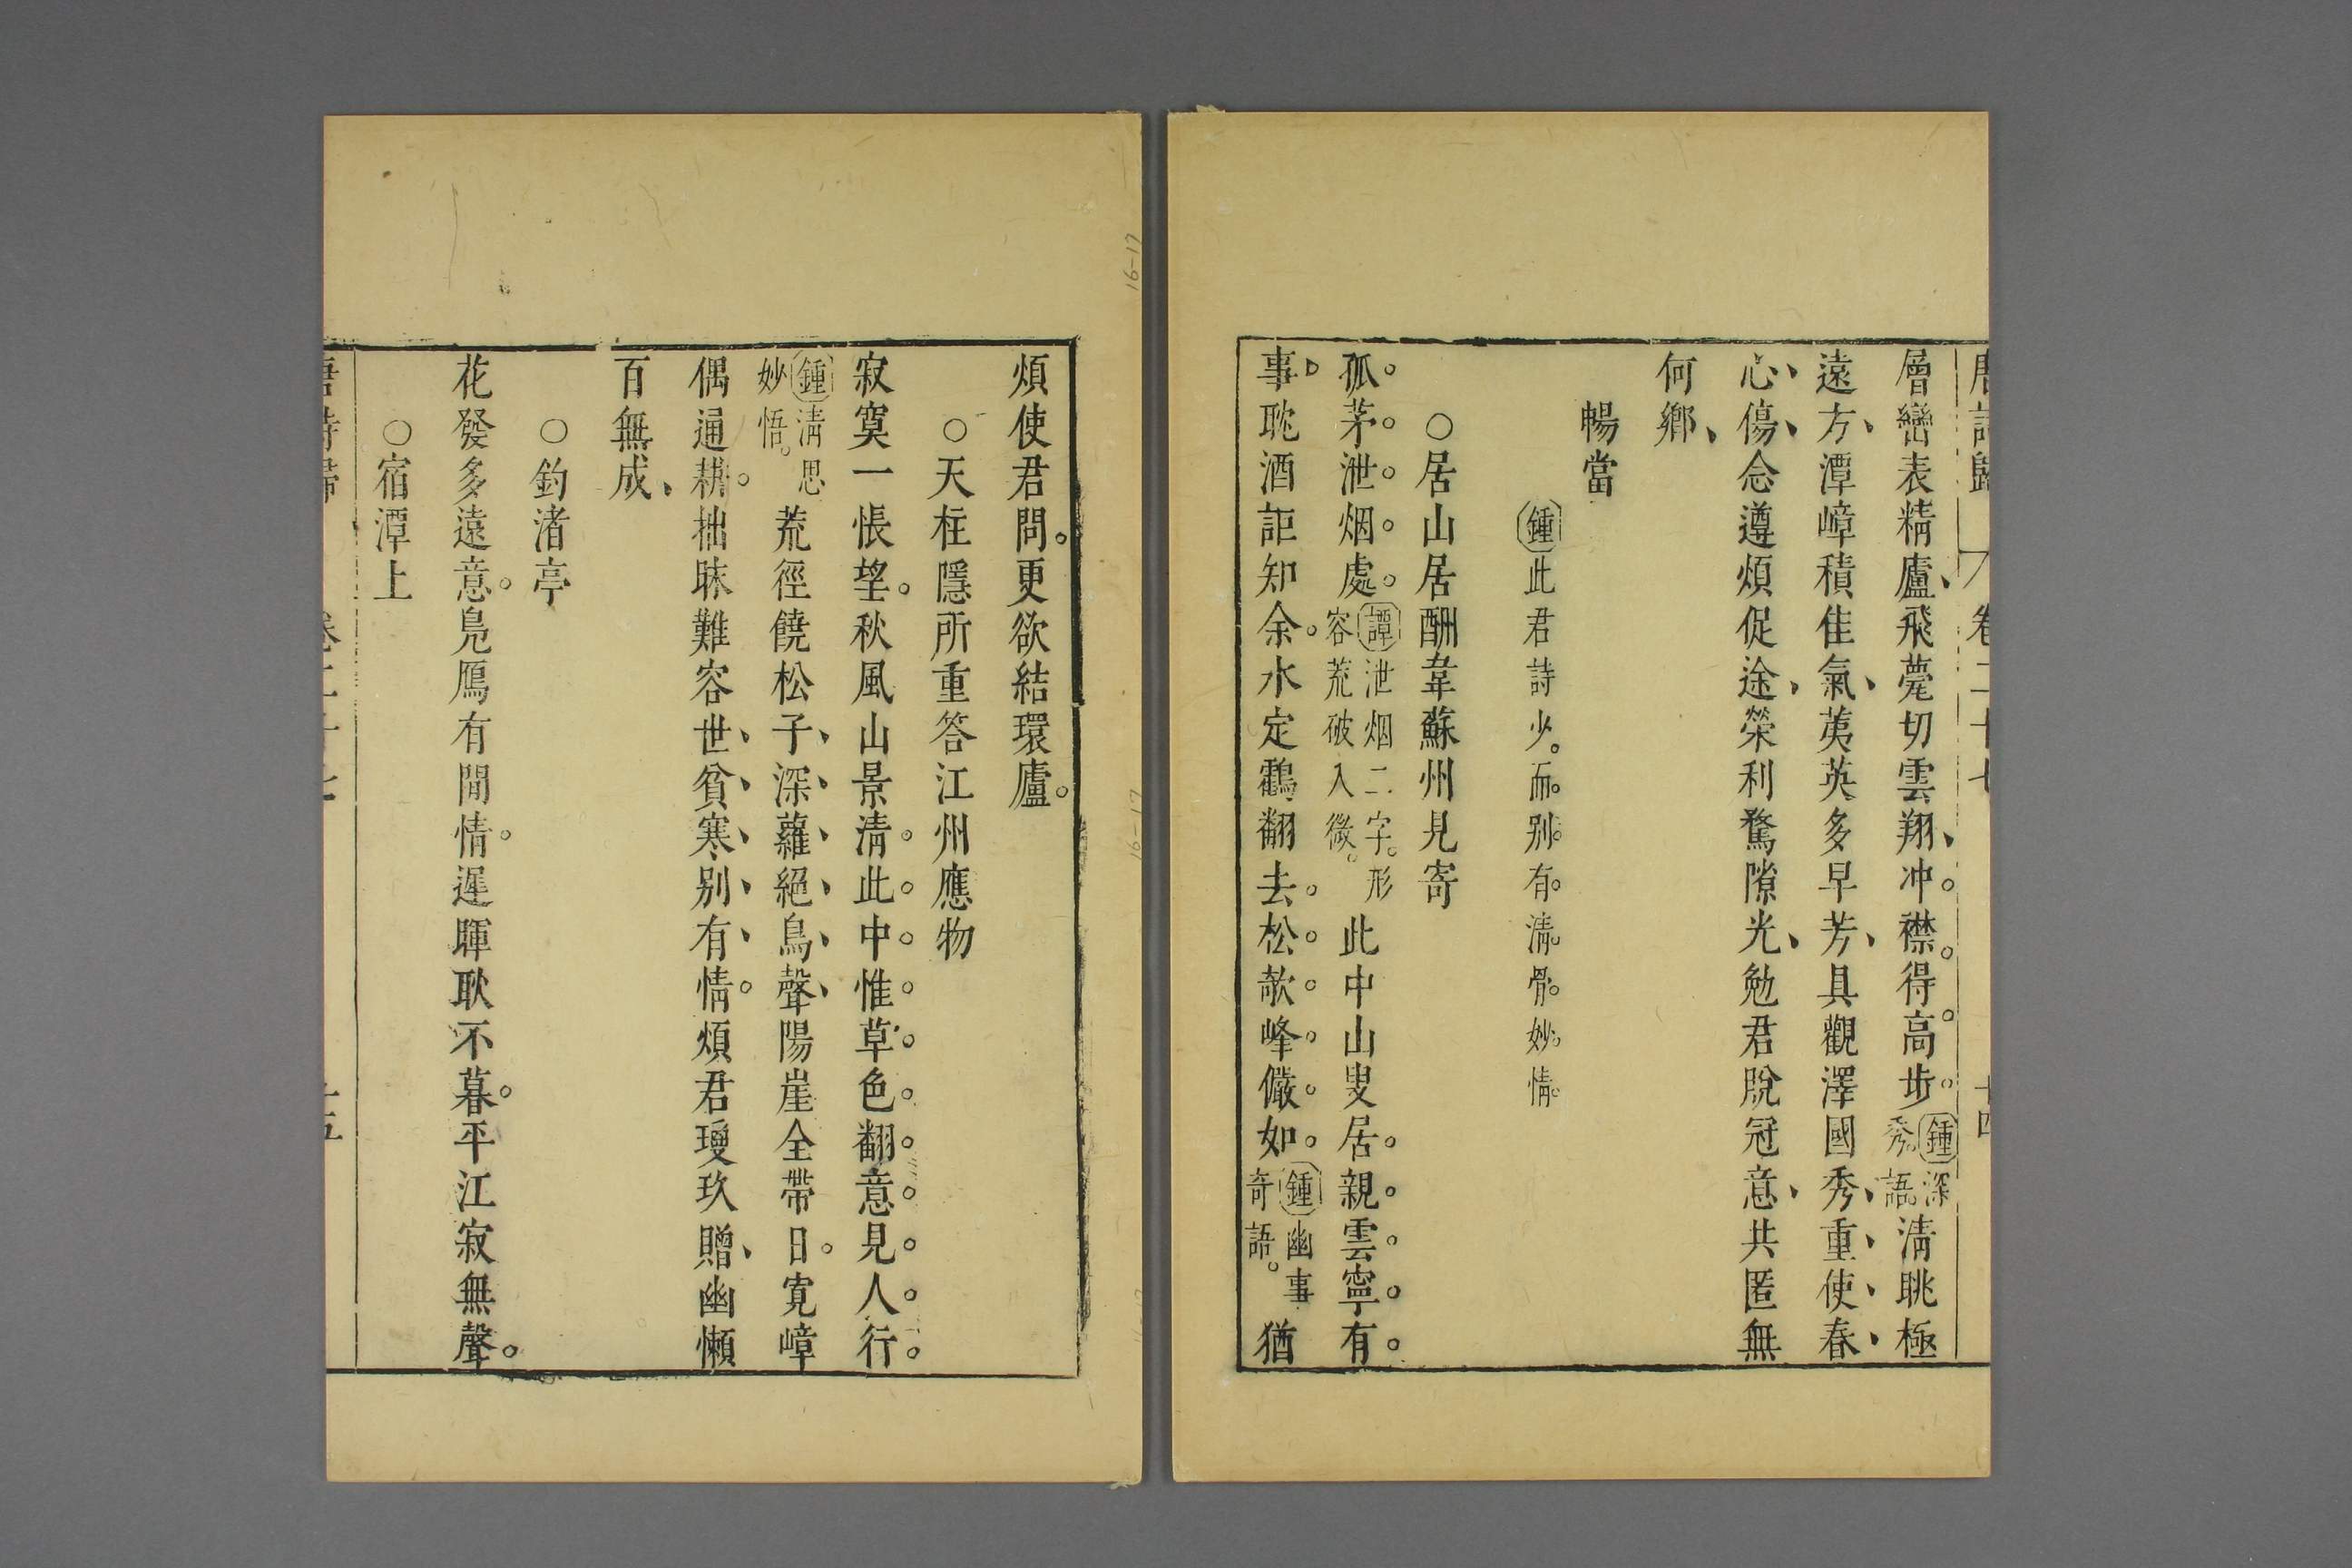 唐詩歸 卷二十七 十四
層巒表精廬飛甍切雲翔冲襟得高步鍾深秀語清眺極
遠方潭嶂積佳氣荑英多早芳具觀澤國秀重使春
心傷念遵煩促途榮利騖隙光勉君脫冠意共匿無
何鄉
暢當
鍾此君詩少而别有清骨妙情
○居山居酬韋蘇州見寄
孤茅泄烟處譚泄烟二字形容荒破入微此中山叟居親雲寧有
事耽酒詎知余水定鸛翻去松欹峰儼如鍾幽事奇語猶
煩使君問更欲結環廬
○天柱隱所重答江州應物
寂寞一悵望秋風山景清此中惟草色翻意見人行
鍾清思妙悟荒徑饒松子深蘿絕鳥聲陽崖全帶日寛嶂
偶通耕拙昧難容世貧寒别有情煩君瓊玖贈幽懶
百無成
○釣渚亭
花發多遠意鳬鴈有閒情遲暉耿不暮平江寂無聲
○宿潭上
唐詩歸 卷二十七 十五
16-17
16-17